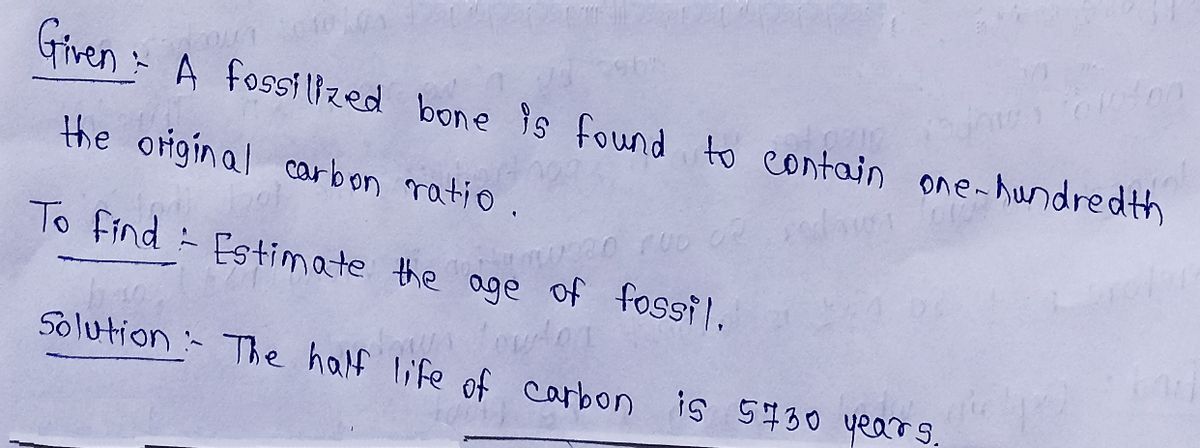 Given :- A fossilized bone is found to contain one-hundredth
the original carbon ratio.
To find :- Estimate the age of fossil.
Solution :- The half life of carbon is 5730 years.